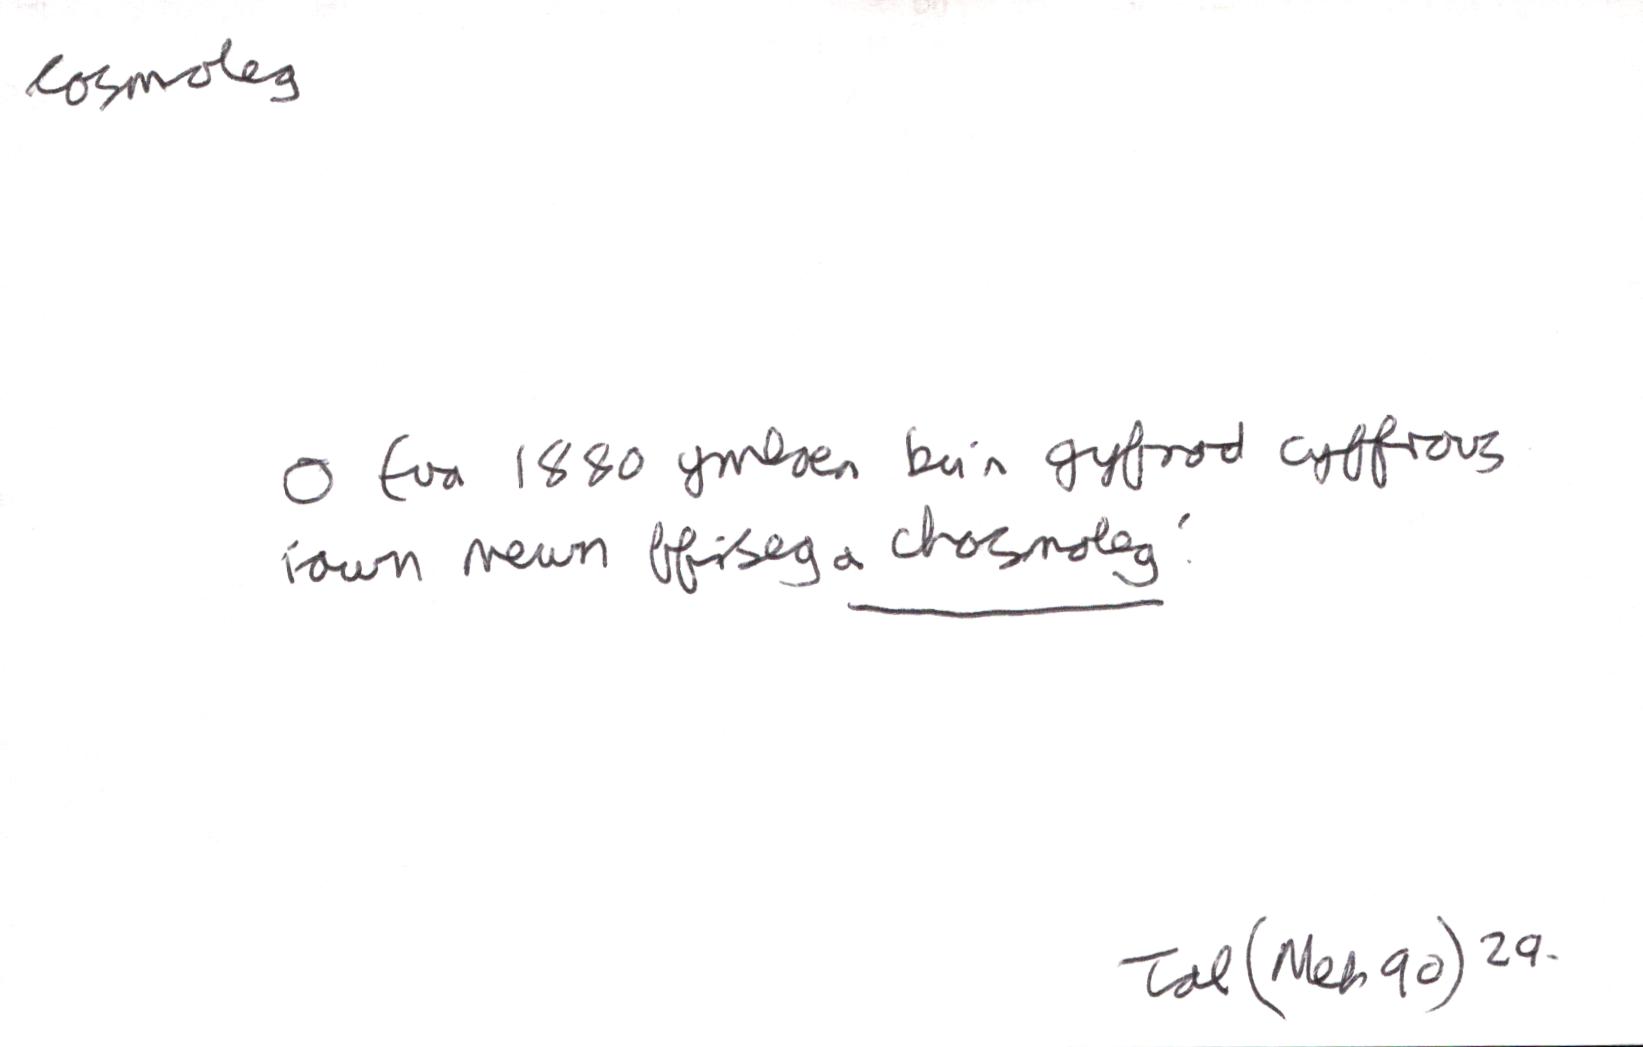 cosmoleg
O tua 1880 ymlaen bu'n gyfnod cyffrous
iawn mewn ffiseg a chosmoleg.'
Tal (Meh 90) 29.